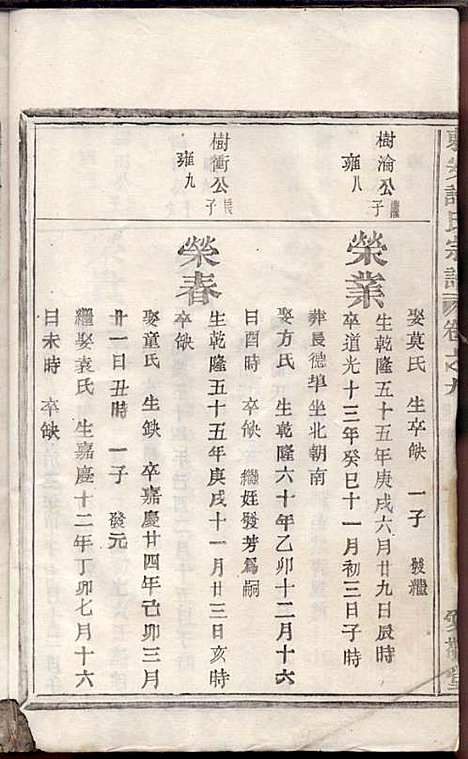 娶莫氏 生卒缺 一子 發繼
樹淪公子
雍八
榮業
生乾隆五十五年庚戌六月廿九日辰時
卒道光十三年癸巳十一月初三日子時
葬長德埠坐北朝南
娶方氏 生乾隆六十年乙卯十二月十六
日酉時 卒缺 繼姪發芳爲嗣
樹衝公長子
雍九
榮春
生乾隆五十五年庚戌十一月廿三日亥時
卒缺
娶童氏 生缺 卒嘉慶廿四年己卯三月
廿一日丑時 一子 發元
繼娶袁氏 生嘉慶十二年丁卯七月十六
日未時 卒缺